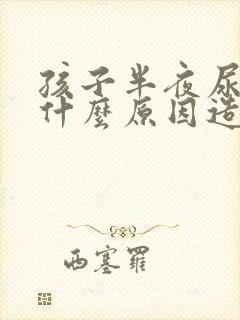 孩子半夜尿
什麼原因造
西塞羅